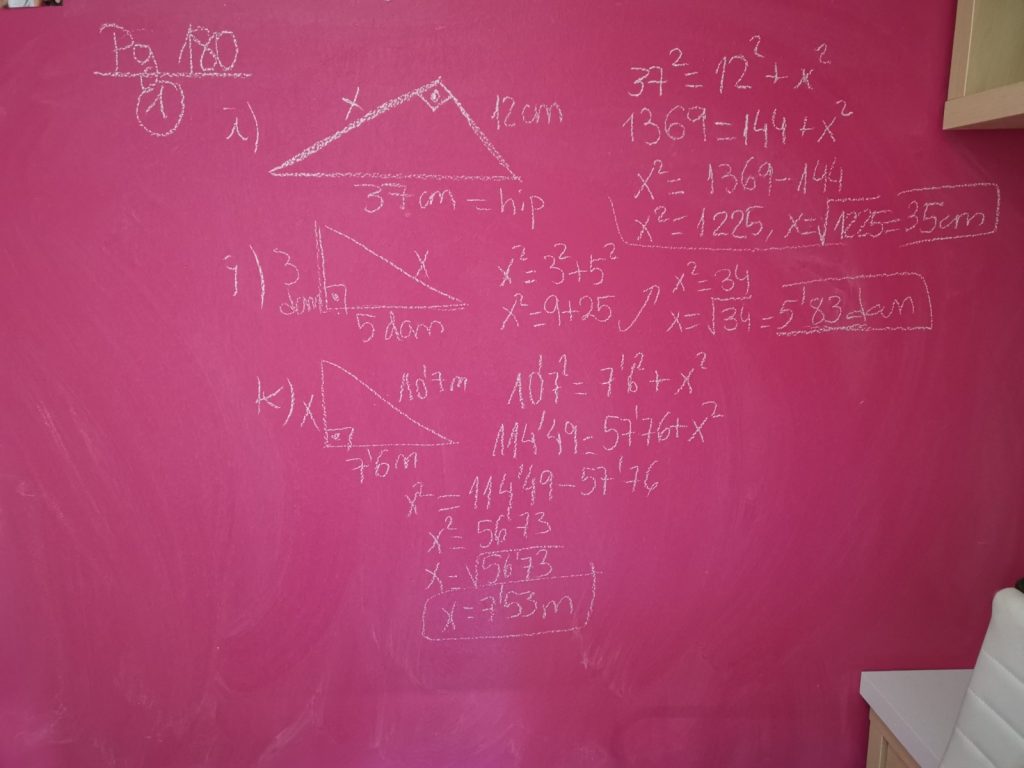 Pg 180
1
i)
x
12cm
37cm = hip
37² = 12² + x²
1369 = 144 + x²
x² = 1369 - 144
x² = 1225, x = √1225 = 35cm
j) 3
dam
x
5 dam
x² = 3² + 5²
x² = 9 + 25
x² = 34
x = √34 = 5'83 dam
k) x
10'7m
7'6m
10'7² = 7'6² + x²
114'49 = 57'76 + x²
x² = 114'49 - 57'76
x² = 5673
x = √5673
x = 7'53m